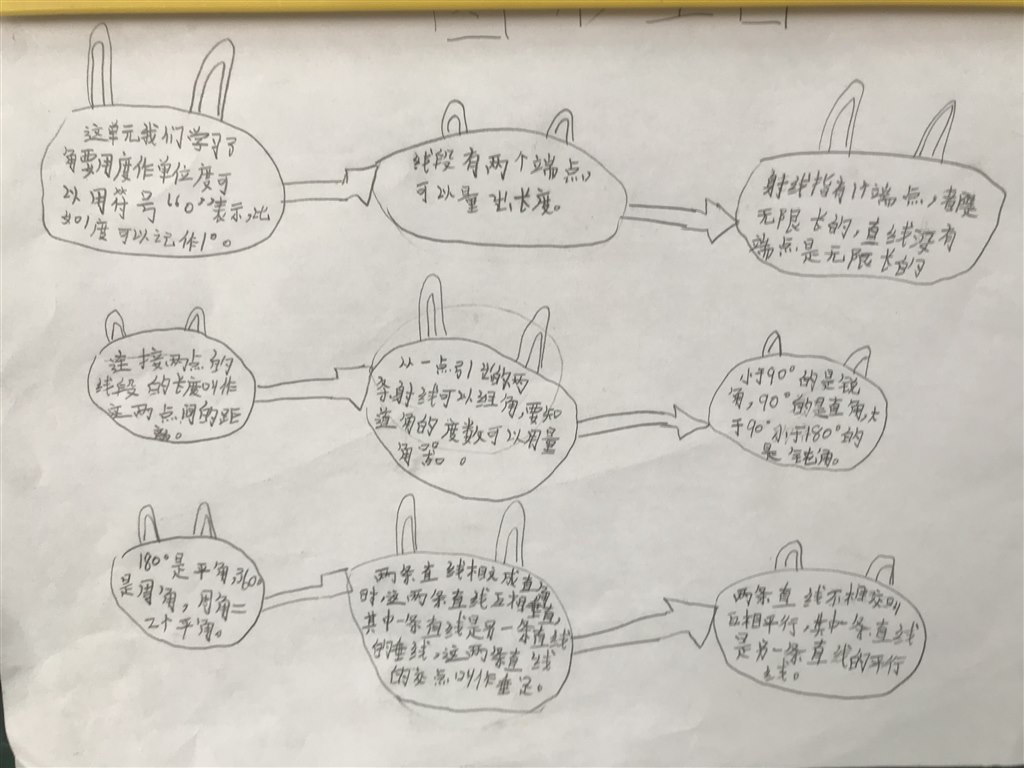 这单元我们学习了
角要用度作单位度可
以用符号“°”表示,比
如1度可以记作1°。
线段有两个端点,
可以量出长度。
射线指有1个端点,
无限长的,直线没有
端点是无限长的
连接两点的
线段的长度叫作
两点间的距
离。
从一点引出的两
条射线可以组角,要知
道角的度数可以用量
角器。
小于90°的是锐
角,90°的是直角,大
于90°小于180°的
是钝角。
180°是平角,360°
是周角,周角=
2个平角。
两条直线相交成直角
时,这两条直线互相垂直,
其中一条直线是另一条直线
的垂线,这两条直线
的交点叫作垂足。
两条直线不相交叫
互相平行,其中一条直线
是另一条直线的平行
线。